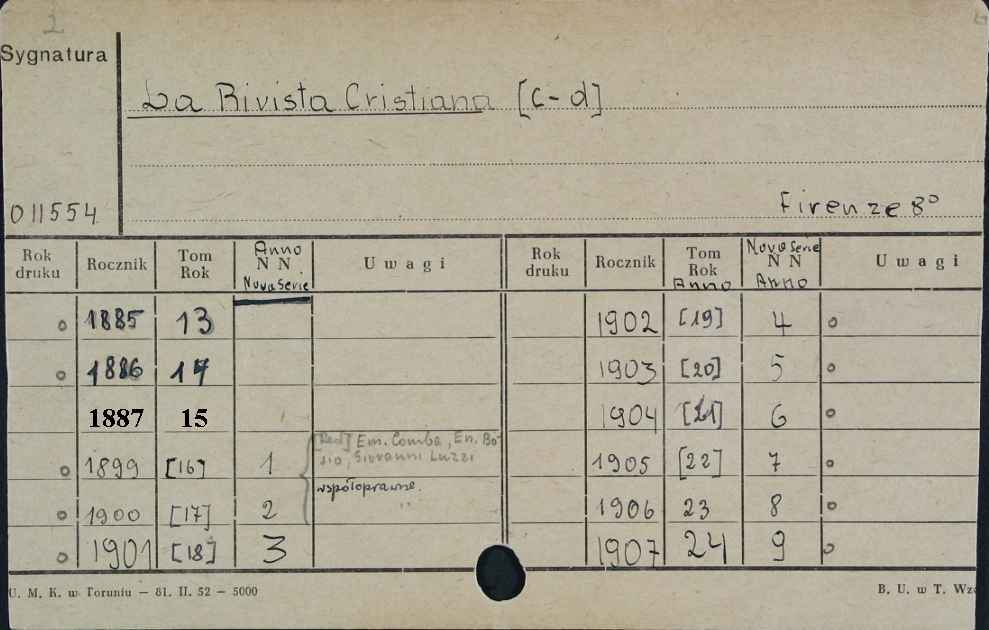 2
Sygnatura
La Rivista Cristiana [c-d]
011554
Firenze 8°
Rok druku Rocznik Tom Rok Anno N N Nuva Serie Uwagi Rok druku Rocznik Tom Rok Anno Nova Serie N N Anno Uwagi
o 1885 13 1902 [19] 4 o
o 1886 14 1903 [20] 5 o
1887 15 1904 [21] 6 o
[Red] Em. Comba, En. Bo-
sio, Giovanni Luzzi
o 1899 [16] 1 1905 [22] 7 o
współoprawne.
o 1900 [17] 2 " 1906 23 8 o
o 1901 [18] 3 1907 24 9 o
U. M. K. w Toruniu — 81. II. 52 — 5000 B. U. w T. Wz